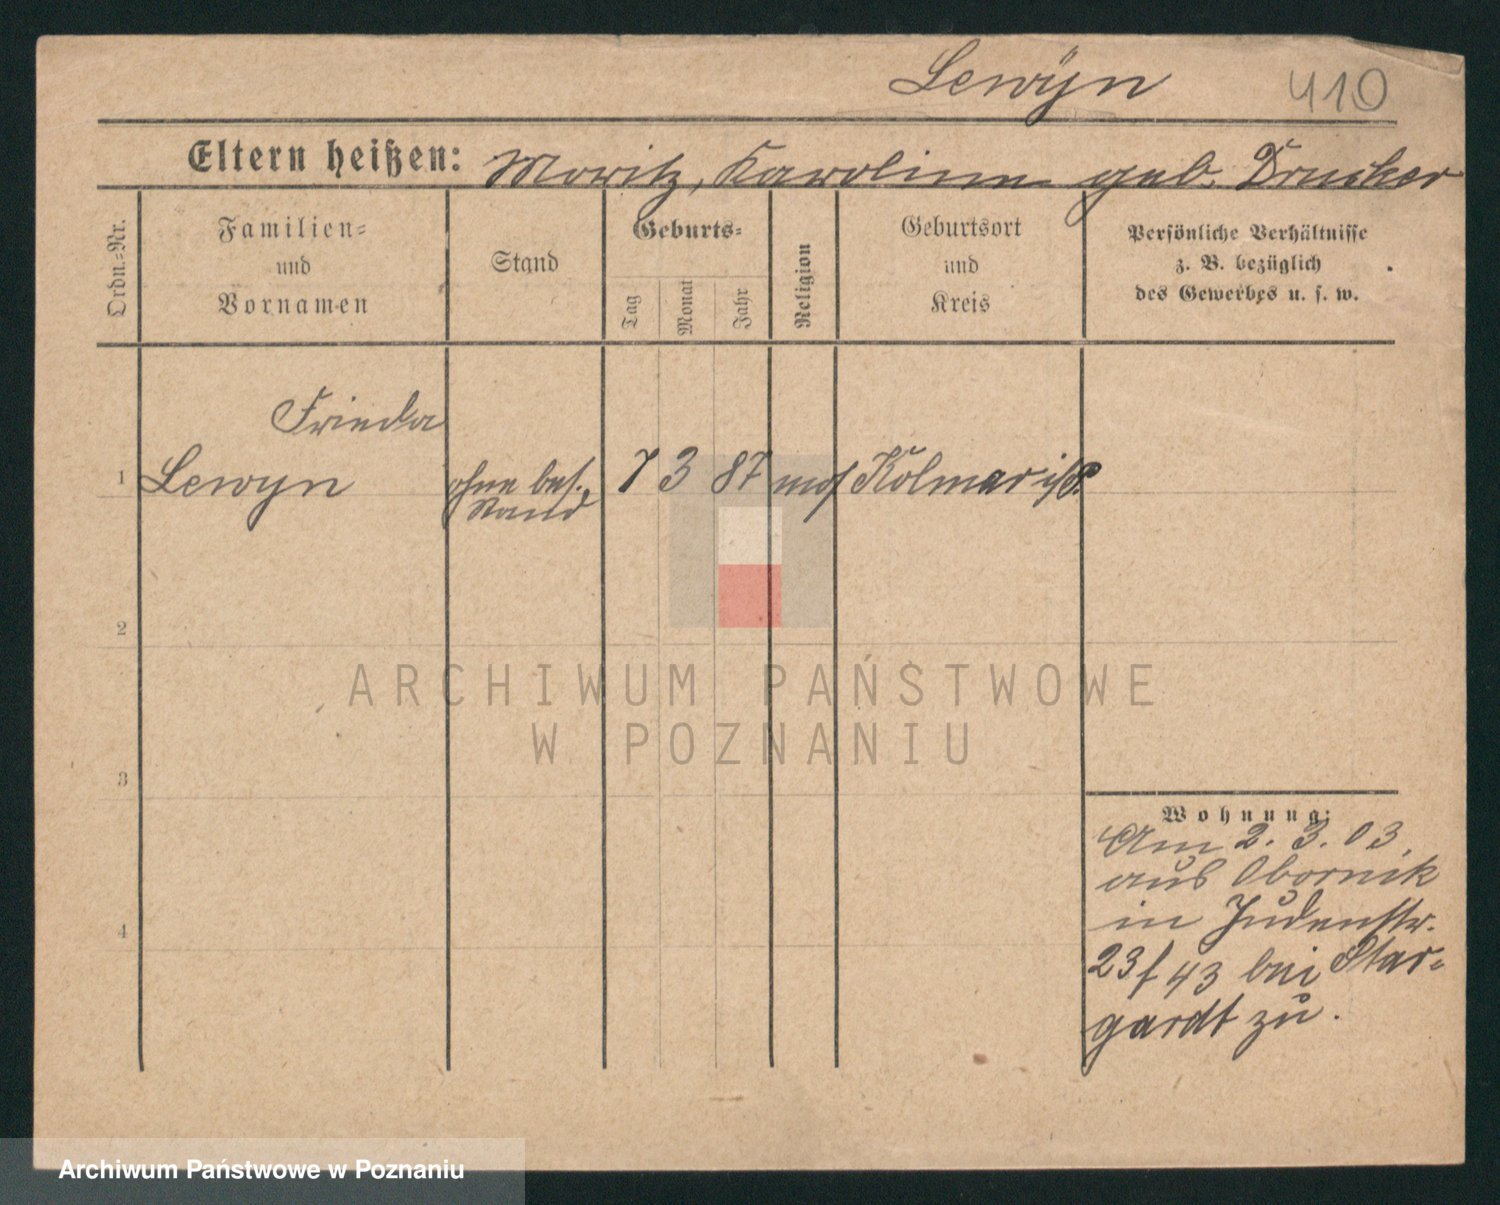 Lewÿn 410
Eltern heißen: Moritz, Karoline geb. Drucker
Ordn.-Nr.
Familien-
und
Vornamen
Stand
Geburts-
Tag
Monat
Jahr
Religion
Geburtsort
und
Kreis
Persönliche Verhältnisse
z. B. bezüglich
des Gewerbes u. s. w.
Frieda
1 Lewyn ohne bes. 7 3 87 mos Kolmar i/P.
Stand
2
3
4
Wohnung:
Am 2. 3. 03.
aus Obornik
in Judenstr.
23/43 bei Star-
gardt zu.
ARCHIWUM PAŃSTWOWE
W POZNANIU
Archiwum Państwowe w Poznaniu